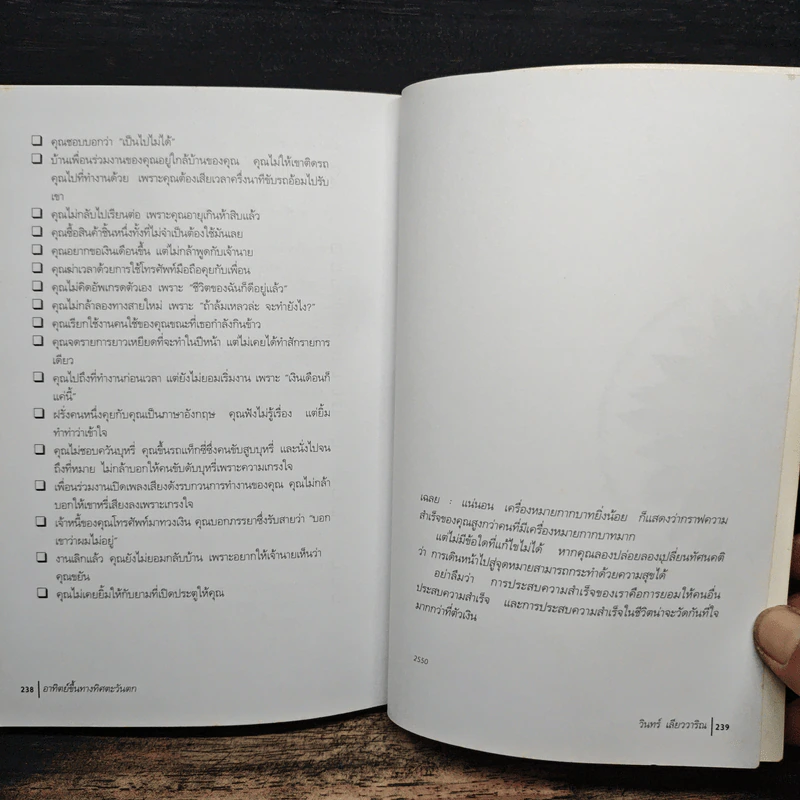 ❏ คุณชอบบอกว่า "เป็นไปไม่ได้"
❏ บ้านเพื่อนร่วมงานของคุณอยู่ใกล้บ้านของคุณ คุณไม่ให้เขาติดรถ
คุณไปที่ทำงานด้วย เพราะคุณต้องเสียเวลาครึ่งนาทีขับรถอ้อมไปรับ
เขา
❏ คุณไม่กลับไปเรียนต่อ เพราะคุณอายุเกินห้าสิบแล้ว
❏ คุณซื้อสินค้าชิ้นหนึ่งทั้งที่ไม่จำเป็นต้องใช้มันเลย
❏ คุณอยากขอเงินเดือนขึ้น แต่ไม่กล้าพูดกับเจ้านาย
❏ คุณฆ่าเวลาด้วยการใช้โทรศัพท์มือถือคุยกับเพื่อน
❏ คุณไม่คิดอัพเกรดตัวเอง เพราะ "ชีวิตของฉันก็ดีอยู่แล้ว"
❏ คุณไม่กล้าลองทางสายใหม่ เพราะ "ถ้าล้มเหลวล่ะ จะทำยังไง?"
❏ คุณเรียกใช้งานคนใช้ของคุณขณะที่เธอกำลังกินข้าว
❏ คุณจดรายการยาวเหยียดที่จะทำในปีหน้า แต่ไม่เคยได้ทำสักรายการ
เดียว
❏ คุณไปถึงที่ทำงานก่อนเวลา แต่ยังไม่ยอมเริ่มงาน เพราะ "เงินเดือนก็
แค่นี้"
❏ ฝรั่งคนหนึ่งคุยกับคุณเป็นภาษาอังกฤษ คุณฟังไม่รู้เรื่อง แต่ยิ้ม
ทำท่าว่าเข้าใจ
❏ คุณไม่ชอบควันบุหรี่ คุณขึ้นรถแท็กซี่ซึ่งคนขับสูบบุหรี่ และนั่งไปจน
ถึงที่หมาย ไม่กล้าบอกให้คนขับดับบุหรี่เพราะความเกรงใจ
❏ เพื่อนร่วมงานเปิดเพลงเสียงดังรบกวนการทำงานของคุณ คุณไม่กล้า
บอกให้เขาหรี่เสียงลงเพราะเกรงใจ
❏ เจ้าหนี้ของคุณโทรศัพท์มาทวงเงิน คุณบอกภรรยาซึ่งรับสายว่า "บอก
เขาว่าผมไม่อยู่"
❏ งานเลิกแล้ว คุณยังไม่ยอมกลับบ้าน เพราะอยากให้เจ้านายเห็นว่า
คุณขยัน
❏ คุณไม่เคยยิ้มให้กับยามที่เปิดประตูให้คุณ
238 | อาทิตย์ขึ้นทางทิศตะวันตก
เฉลย : แน่นอน เครื่องหมายกากบาทยิ่งน้อย ก็แสดงว่ากราฟความ
สำเร็จของคุณสูงกว่าคนที่มีเครื่องหมายกากบาทมาก
แต่ไม่มีข้อใดที่แก้ไขไม่ได้ หากคุณลองปล่อยลองเปลี่ยนทัศนคติ
ว่า การเดินหน้าไปสู่จุดหมายสามารถกระทำด้วยความสุขได้
อย่าลืมว่า การประสบความสำเร็จของเราคือการยอมให้คนอื่น
ประสบความสำเร็จ และการประสบความสำเร็จในชีวิตน่าจะวัดกันที่ใจ
มากกว่าที่ตัวเงิน
2550
วินทร์ เลียววาริณ | 239